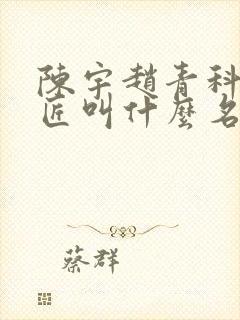 陳宇趙青科
匠叫什麼名
蔡群